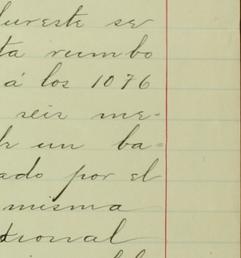 ureste se
ta rumbo
á los 1076
seis me-
h un ba-
ado por el
misma
cional